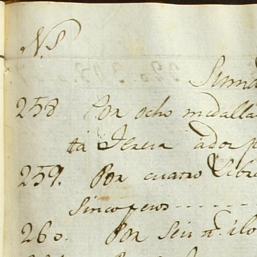 N.S
Suma
258 Por ocho medalla
ta Teresa ador p
259. Por cuatro Libr
sinco pesos ------
260. Por Seis